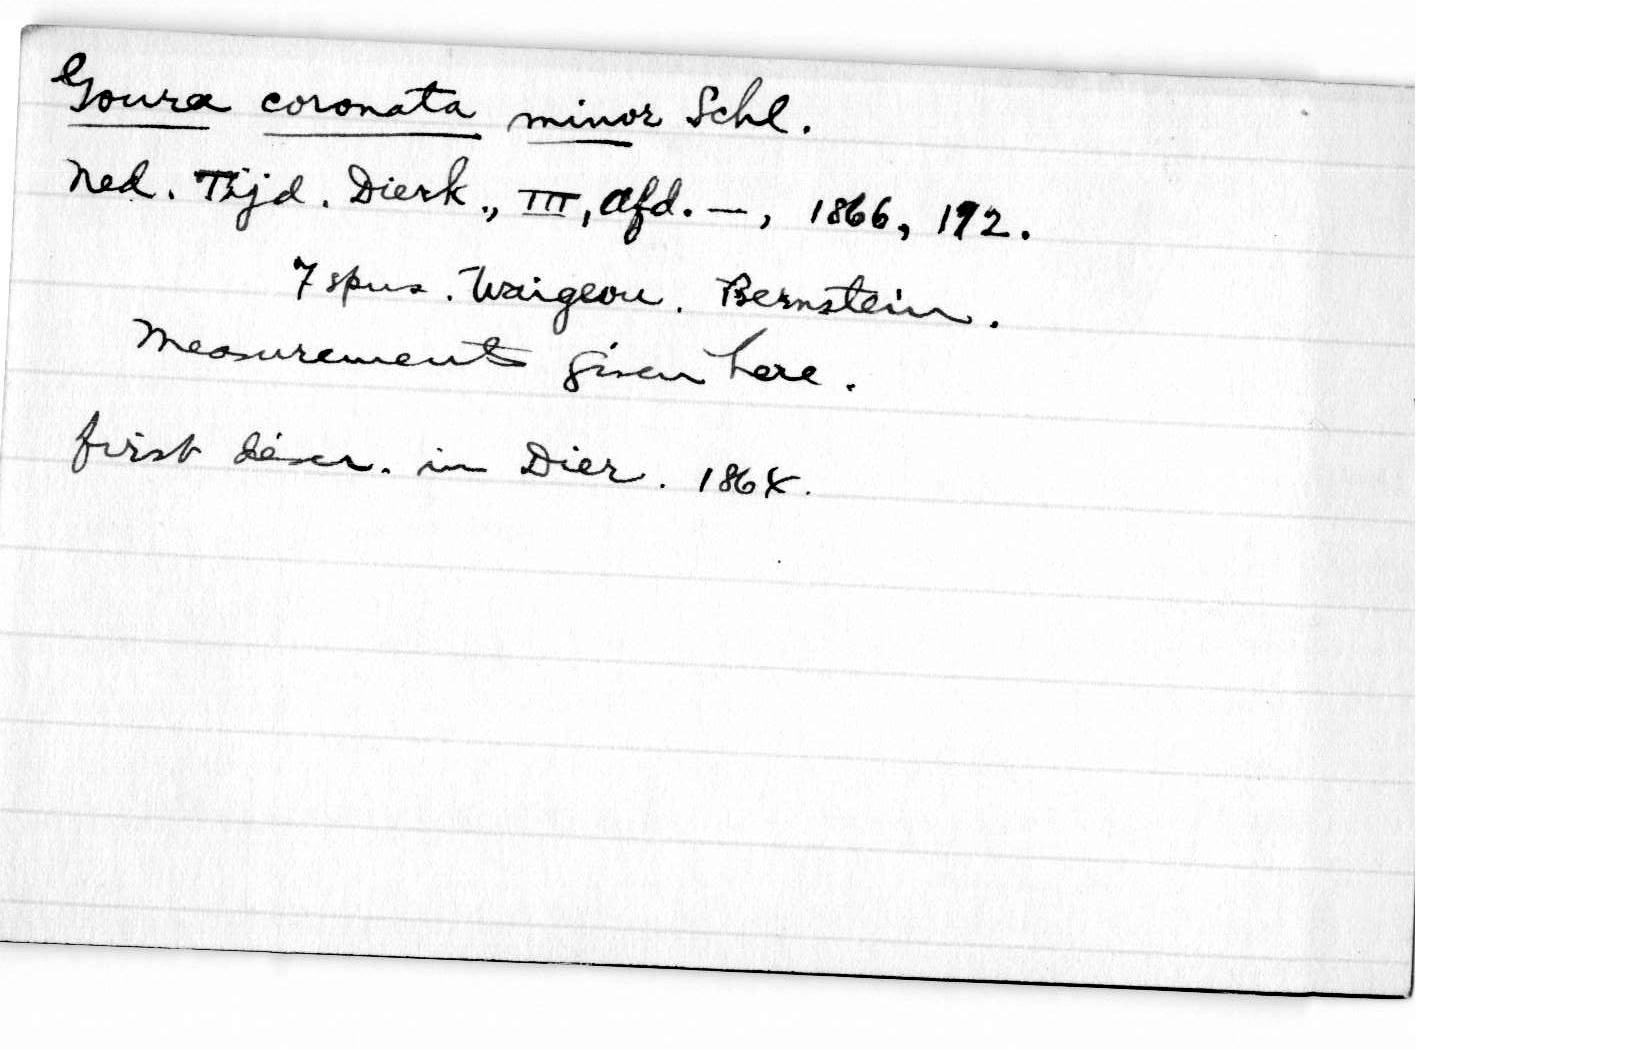 Goura coronata minor Schl.
Ned. Tijd. Dierk., III, Afd. —, 1866, 192.
7 spms. Waigeou. Bernstein.
Measurements given here.
first descr. in Dier. 1864.